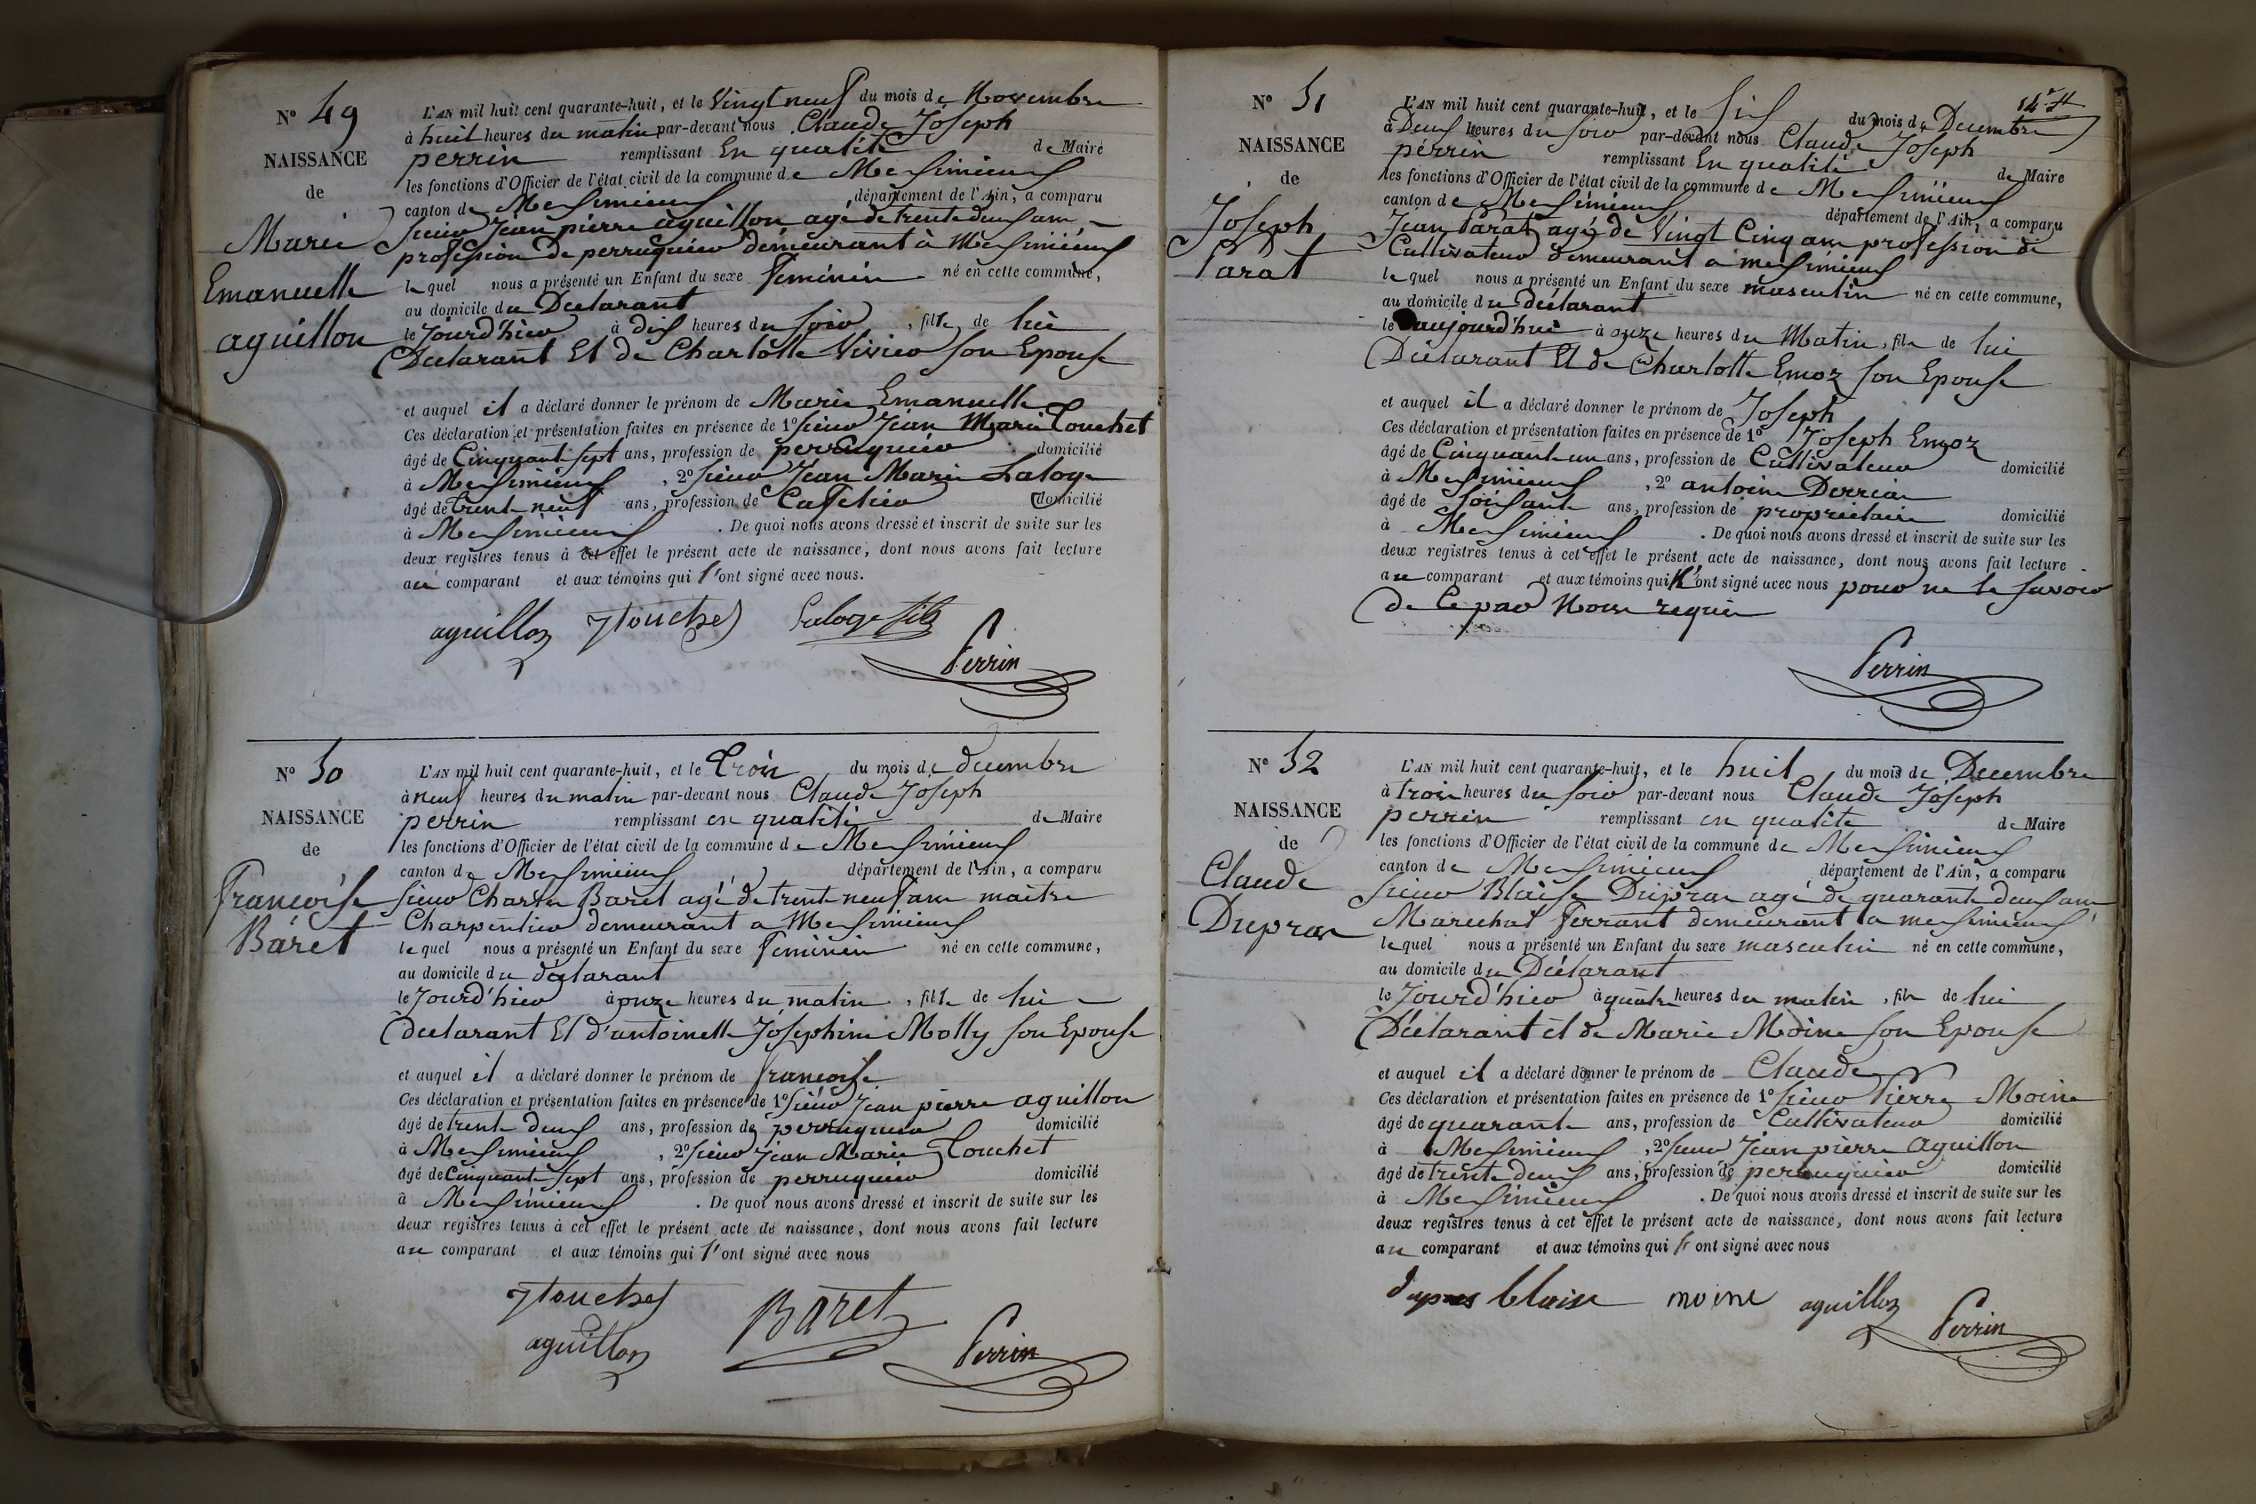 N° 49
NAISSANCE
de
Marie
Emanuelle
aguillon
L'AN mil huit cent quarante-huit, et le Vingt neuf du mois de Novembre
à huit heures du matin par-devant nous Claude Joseph
perrin remplissant En qualité de Maire
les fonctions d'Officier de l'état civil de la commune de Meximieux
canton de Meximieux département de l'Ain, a comparu
Sieur Jean pierre aguillon agé de trente deux ans
profession de perruquier demeurant à Meximieux
lequel nous a présenté un Enfant du sexe feminin né en cette commune,
au domicile du Declarant
le jourd'hier à dix heures du soir, fille de lui
Declarant Et de Charlotte Vivier son Epouse
et auquel il a déclaré donner le prénom de Marie Emanuelle
Ces déclaration et présentation faites en présence de 1° Sieur Jean Marie Touchet
âgé de Cinquante sept ans, profession de perruquier domicilié
à Meximieux, 2° Sieur Jean Marie Laloge
âgé de trente neuf ans, profession de Cafetier domicilié
à Meximieux. De quoi nous avons dressé et inscrit de suite sur les
deux registres tenus à cet effet le présent acte de naissance, dont nous avons fait lecture
au comparant et aux témoins qui l'ont signé avec nous.
aguillon Jtouchet Laloge fils
Perrin
N° 50
NAISSANCE
de
françoise
Baret
L'AN mil huit cent quarante-huit, et le Trois du mois de decembre
à neuf heures du matin par-devant nous Claude Joseph
perrin remplissant en qualité de Maire
les fonctions d'Officier de l'état civil de la commune de Meximieux
canton de Meximieux département de l'Ain, a comparu
Sieur Charles Baret agé de trente neuf ans maitre
Charpentier demeurant a Meximieux
lequel nous a présenté un Enfant du sexe feminin né en cette commune,
au domicile du déclarant
le jourd'hier à onze heures du matin, fille de lui
declarant Et d'antoinette Josephine Molly son Epouse
et auquel il a déclaré donner le prénom de françoise
Ces déclaration et présentation faites en présence de 1° Sieur Jean pierre aguillon
âgé de trente deux ans, profession de perruquier domicilié
à Meximieux, 2° Sieur Jean Marie Touchet
âgé de Cinquante sept ans, profession de perruquier domicilié
à Meximieux. De quoi nous avons dressé et inscrit de suite sur les
deux registres tenus à cet effet le présent acte de naissance, dont nous avons fait lecture
au comparant et aux témoins qui l'ont signé avec nous
Jtouchet Baret
aguillon Perrin
N° 51
NAISSANCE
de
Joseph
Parat
L'AN mil huit cent quarante-huit, et le Six du mois de Decembre
à Deux heures du soir par-devant nous Claude Joseph
perrin remplissant En qualité de Maire
les fonctions d'Officier de l'état civil de la commune de Meximieux
canton de Meximieux département de l'Ain, a comparu
Jean Parat agé de Vingt Cinq ans profession de
Cultivateur demeurant a meximieux
lequel nous a présenté un Enfant du sexe masculin né en cette commune,
au domicile du déclarant
le aujourd'hui à onze heures du Matin, fils de lui
Déclarant Et de Charlotte Emoz son Epouse
et auquel il a déclaré donner le prénom de Joseph
Ces déclaration et présentation faites en présence de 1° Joseph Emoz
âgé de Cinquante un ans, profession de Cultivateur domicilié
à Meximieux, 2° antoine Derriaz
âgé de soixante ans, profession de propriétaire domicilié
à Meximieux. De quoi nous avons dressé et inscrit de suite sur les
deux registres tenus à cet effet le présent acte de naissance, dont nous avons fait lecture
au comparant et aux témoins qui n'ont signé avec nous pour ne le savoir
de Ce par Nous requis
Perrin
N° 52
NAISSANCE
de
Claude
Dupras
L'AN mil huit cent quarante-huit, et le huit du mois de Decembre
à trois heures du soir par-devant nous Claude Joseph
perrin remplissant en qualité de Maire
les fonctions d'Officier de l'état civil de la commune de Meximieux
canton de Meximieux département de l'Ain, a comparu
Sieur Blaise Dupras agé de quarante deux ans
Marechal ferrant demeurant a meximieux
lequel nous a présenté un Enfant du sexe masculin né en cette commune,
au domicile du Déclarant
le jourd'hier à quatre heures du matin, fils de lui
Déclarant et de Marie Moine son Epouse
et auquel il a déclaré donner le prénom de Claude
Ces déclaration et présentation faites en présence de 1° Sieur Pierre Moine
âgé de quarante ans, profession de Cultivateur domicilié
à Meximieux, 2° Sieur Jean pierre aguillon
âgé de trente deux ans, profession de perruquier domicilié
à Meximieux. De quoi nous avons dressé et inscrit de suite sur les
deux registres tenus à cet effet le présent acte de naissance, dont nous avons fait lecture
au comparant et aux témoins qui l'ont signé avec nous
dupras blaise moine aguillon Perrin